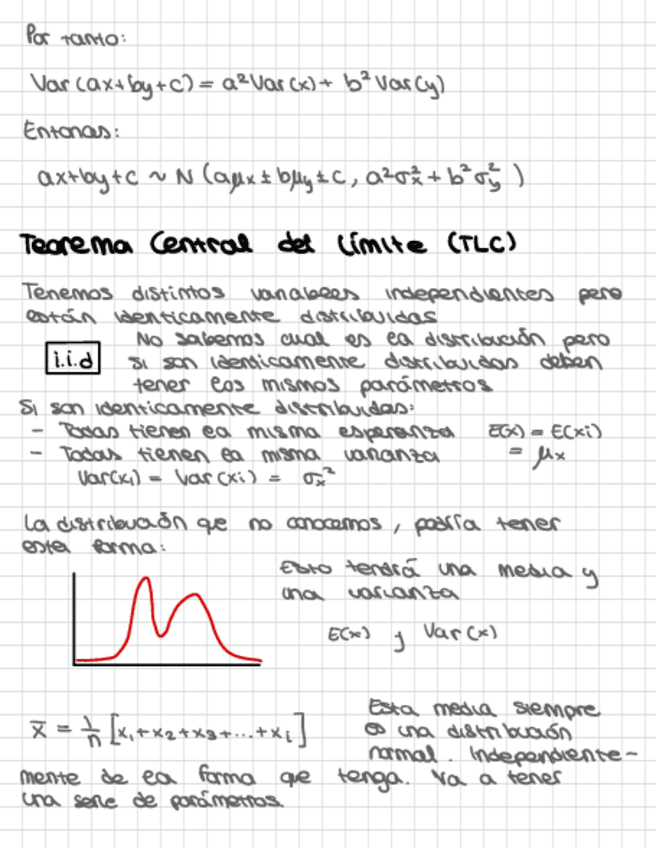 Por tanto:
Var(ax+by+c) = a²Var(x) + b²Var(y)
Entonces:
ax+by+c ~ N (aμx ± bμy ± c, a²σx² + b²σy²)
Teorema Central del Límite (TLC)
Tenemos distintos variables independientes pero
están identicamente distribuidas
i.i.d
No sabemos cual es la distribución pero
si son identicamente distribuidas deben
tener los mismos parámetros
Si son identicamente distribuidas:
- Todas tienen la misma esperanza E(x) = E(xi)
- Todas tienen la misma varianza = μx
Var(x₁) = Var(xi) = σx²
La distribución que no conocemos, podría tener
esta forma:
Esto tendrá una media y
una varianza
E(x) y Var(x)
x̄ = 1/n [x₁+x₂+x₃+...+xi]
Esta media siempre
es una distribución
normal. Independiente-
mente de la forma que tenga. Va a tener
una serie de parámetros.